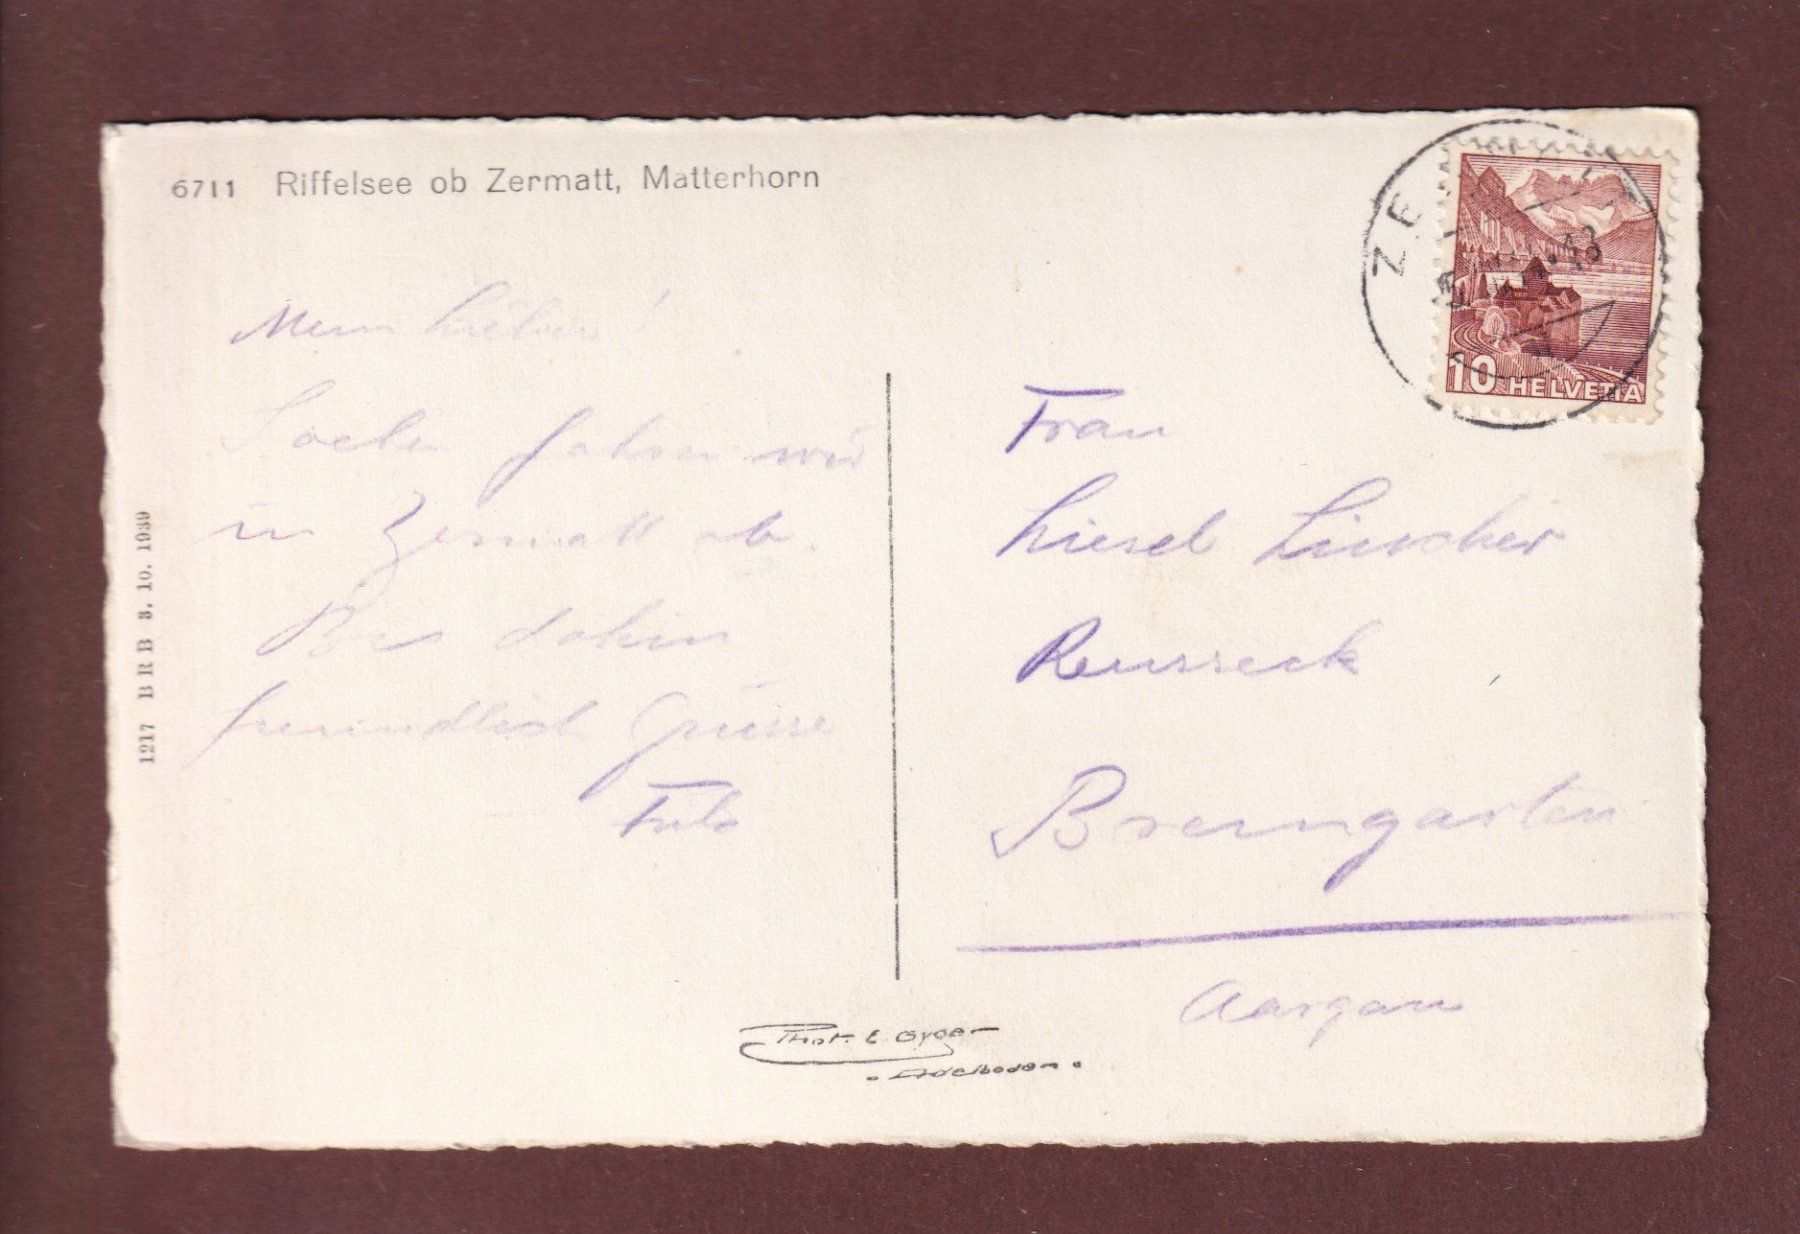 6711 Riffelsee ob Zermatt, Matterhorn
Mein Lieben!
Soeben fahren wir
in Zermatt ab.
Bis dahin
freundlich Grüsse
10 HELVETIA
Frau
Liesel
Reusseck
Bremgarten
Aargau
1217 BRB 3. 10. 1939
Phot. E. Gyger
Adelboden